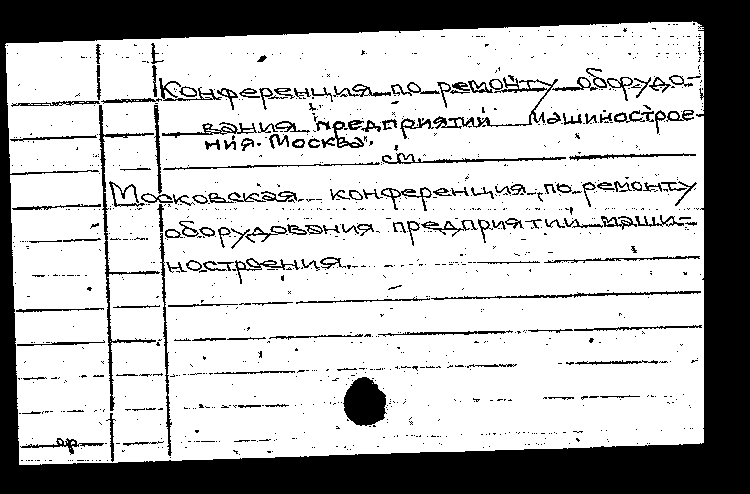 Конференция по ремонту оборудо-
вания предприятий машинострое-
ния. Москва.
см.
Московская конференция по ремонту
оборудования предприятий маши-
ностроения.
ар